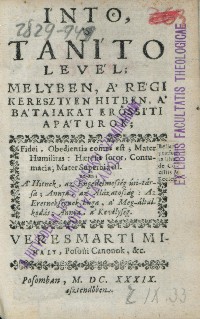 INTŐ,
2829-949
TANITO
LEVEL;
MELYBEN, A' REGI
KERESZTYEN HITBEN, A'
BATAIAKAT ERŐSITI
APATURRA
Fidei, Obedientia comes est, Mater
Humilitas: Hæresi soror, Contu-
macia; Mater Superbia
A' Hitnek, az Engedelmesség úti-tár-
sa; Annya, az Alázatosság: Az
Eretnekségnek huga, a' Meg-átal-
kodás; Annya, a' Kevélység.
VERESMARTI MI-
HALY, Posoni Canonok, &c.
Posomban, M. DC. XXXIX.
esztendőben.
EX LIBRIS FACULTATIS THEOLOGICAE